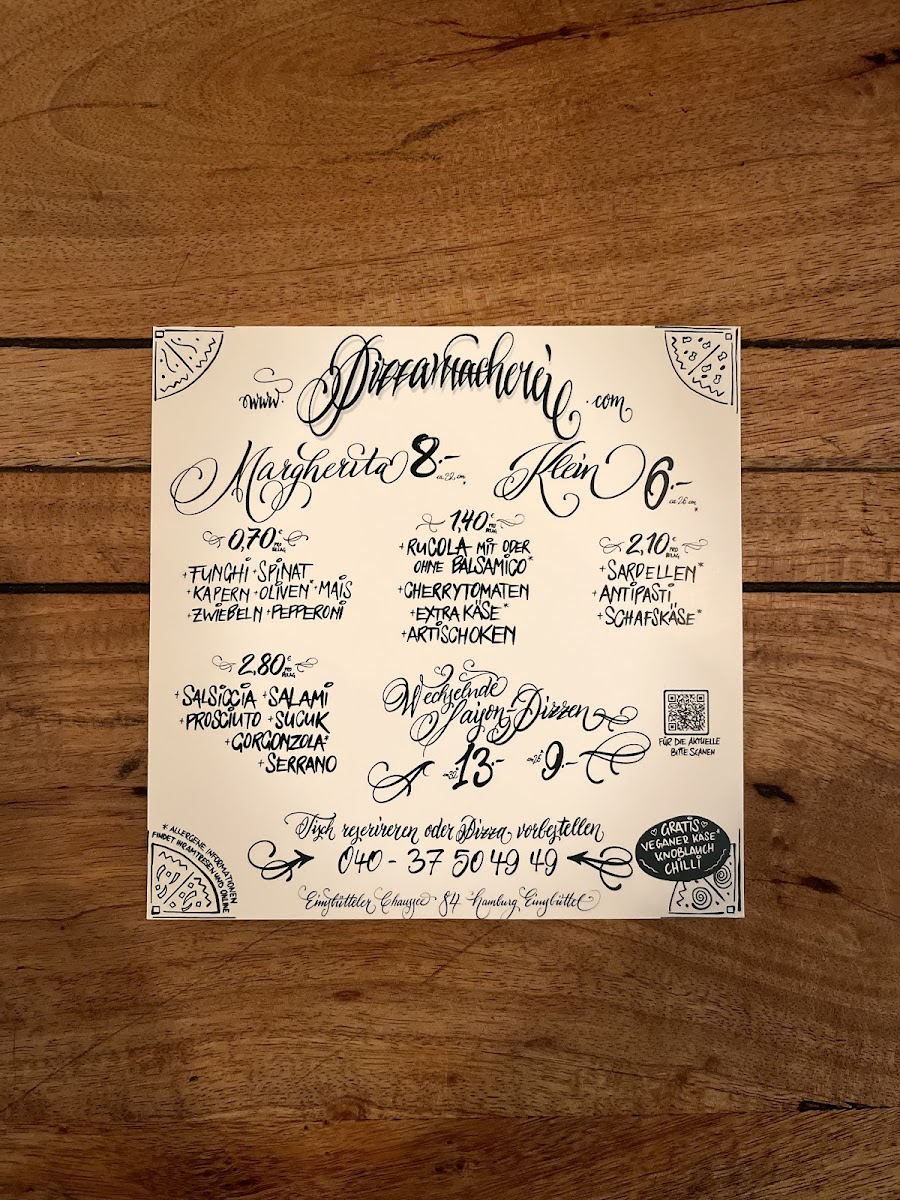 www. Pizzamacherei .com
Margherita 8.-
Klein 6.-
ca. 26 cm
0,70 € PRO BELAG
+FUNGHI +SPINAT
+KAPERN +OLIVEN* +MAIS
+ZWIEBELN +PEPPERONI
1,40 € PRO BELAG
+RUCOLA MIT ODER
OHNE BALSAMICO*
+CHERRYTOMATEN
+EXTRA KÄSE*
+ARTISCHOKEN
2,10 € PRO BELAG
+SARDELLEN*
+ANTIPASTI
+SCHAFSKÄSE*
2,80 € PRO BELAG
+SALSICCIA +SALAMI
+PROSCIUTO +SUCUK
+GORGONZOLA*
+SERRANO
Wechselnde
Saison-Pizzen
13.- 9.-
FÜR DIE AKTUELLE
BITTE SCANEN
Tisch reserireren oder Pizza vorbestellen
040 - 37 50 49 49
Eimsbütteler Chaussee 84 Hamburg Eimsbüttel
* ALLERGENE INFORMATIONEN
FINDET IHR AM TRESEN UND ONLINE
GRATIS
VEGANER KÄSE*
KNOBLAUCH
CHILLI